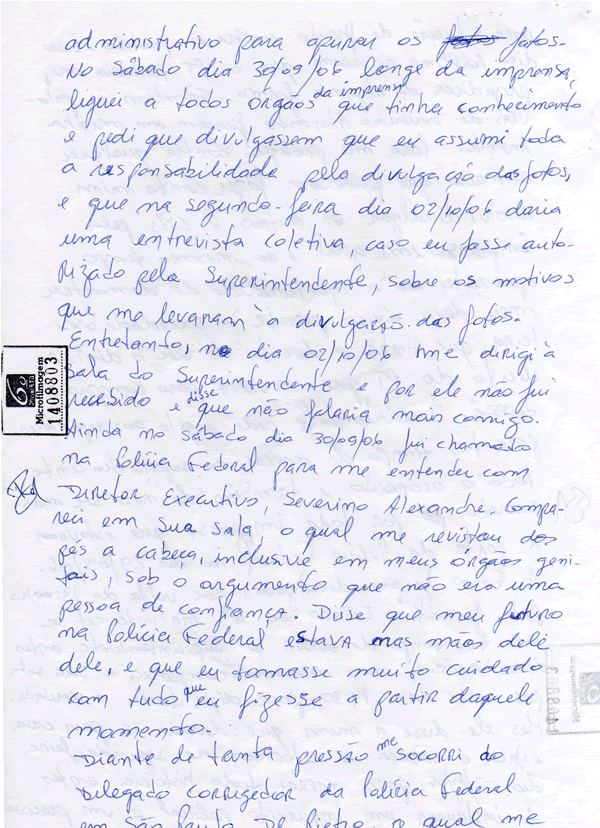 administrativo para apurar os fatos.
No Sábado dia 30/09/06, longe da imprensa,
liguei a todos órgãos da imprensa que tinha conhecimento
e pedi que divulgassem que eu assumi toda
a responsabilidade pela divulgação das fotos,
e que na segunda-feira dia 02/10/06 daria
uma entrevista coletiva, caso eu fosse auto-
rizado pela Superintendente, sobre os motivos
que me levaram à divulgação das fotos.
Entretanto, no dia 02/10/06 me dirigi à
sala do Superintendente e por ele não fui
recebido e disse que não falaria mais comigo.
Ainda no Sábado dia 30/09/06 fui chamado
na Polícia Federal para me entender com
Diretor Executivo, Severino Alexandre. Compa-
reci em sua sala, o qual me revistou dos
pés a cabeça, inclusive em meus órgãos geni-
tais, sob o argumento que não era uma
pessoa de confiança. Disse que meu futuro
na Polícia Federal estava nas mãos dele
dele, e que eu tomasse muito cuidado
com tudo que eu fizesse a partir daquele
momento.
Diante de tanta pressão me socorri do
Delegado corregedor da Polícia Federal
em São Paulo Dr Pietro, o qual me
6º
Microfilmagem
1408803